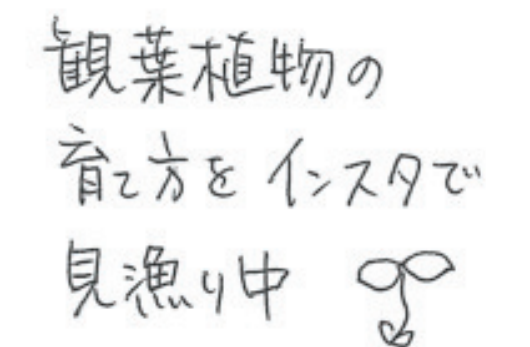 観葉植物の
育て方をインスタで
見漁り中